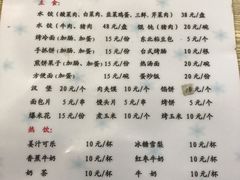 主 食:
水 饺(酸菜肉、白菜肉、韭菜鸡蛋、三鲜、芹菜肉) 38元/盘
水 饺(牛肉、猪肉) 48元/盘 馄 饨(猪肉) 20元/碗
烤冷面(加肠、加蛋) 15元/份 东北粘豆包 5元/个
手抓饼(加肠、加蛋) 10元/份 台式烤肠 10元/根
煎饼果子(加肠、加蛋) 20元/份 茶叶蛋 5元/个
方便面(加肠、加蛋) 20元/碗 蛋炒饭 20元/份
汉 堡 20元/个 肉夹馍 10元/个 馅饼 元/个
面包片 5元/个 煮玉米 10元/个 烤饼 10元/个
爆米花 15元/份
热 饮:
姜汁可乐 10元/杯 冰糖雪梨 10元/杯
香蕉牛奶 10元/杯 红枣牛奶 10元/杯
奶 茶 10元/杯 10元/杯